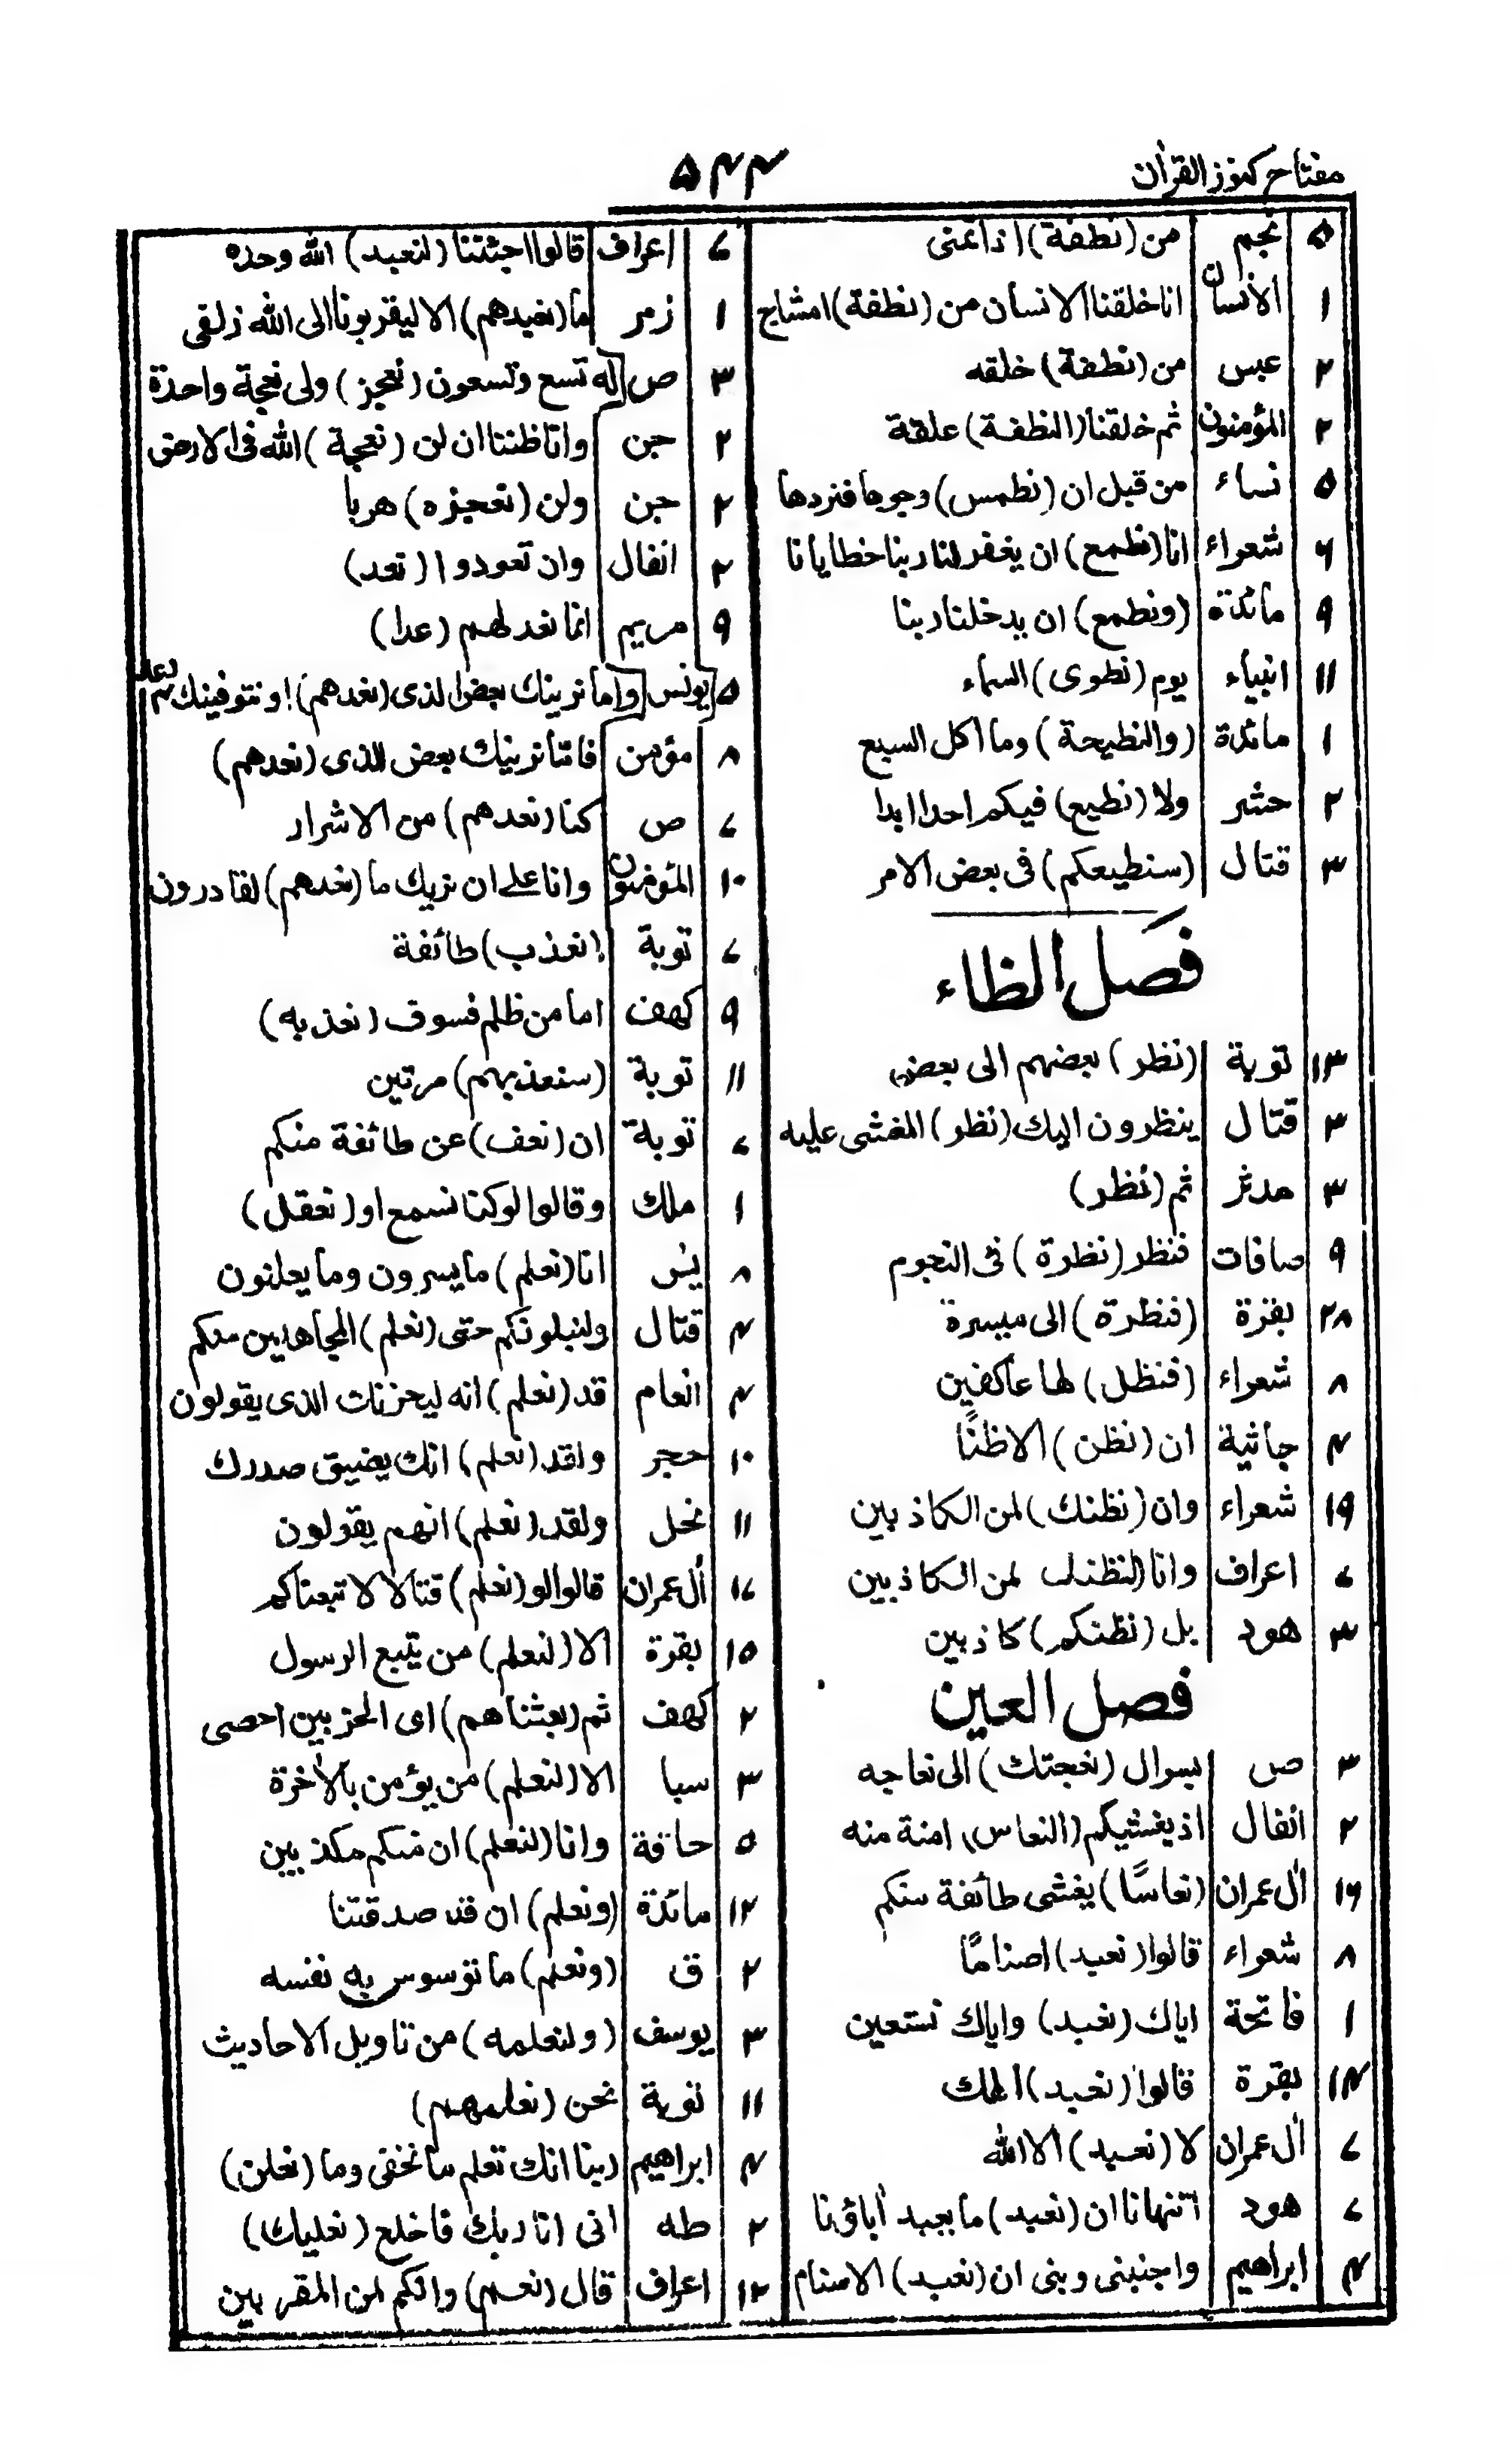 مفتاح كنوز القرآن
۵۴۴
۵ نجم من (نطفة) اذا تمنى
۱ الأنسان انا خلقنا الانسان من (نطفة) امشاج
۲ عبس من (نطفة) خلقه
۲ المؤمنون ثم خلقنا (النطفة) علقة
۵ نساء من قبل ان (نطمس) وجوها فنردها
۶ شعراء انا (نطمع) ان يغفر لنا ربنا خطايانا
۹ مائدة (ونطمع) ان يدخلنا ربنا
۱۱ انبياء يوم (نطوى) السماء
۱ مائدة (والنطيحة) وما اكل السبع
۲ حشر ولا (نطيع) فيكم احدا ابدا
۳ قتال (سنطيعكم) فى بعض الامر
فصل الظاء
۱۳ توبة (نظر) بعضهم الى بعض
۳ قتال ينظرون اليك (نظر) المغشى عليه
۳ مدثر ثم (نظر)
۹ صافات فنظر (نظرة) فى النجوم
۲۸ بقرة (فنظرة) الى ميسرة
۸ شعراء (فنظل) لها عاكفين
۴ جاثية ان (نظن) الا ظنًا
۱۹ شعراء وان (نظنك) لمن الكاذبين
۷ اعراف وانا (لنظنك لمن الكاذبين
۳ هود بل (نظنكم) كاذبين
فصل العين
۳ ص بسوال (نعجتك) الى نعاجه
۲ انفال اذ يغشيكم (النعاس) امنة منه
۱۶ اٰل عمران (نعاسًا) يغشى طائفة منكم
۸ شعراء قالوا (نعبد) اصنامًا
۱ فاتحة اياك (نعبد) واياك نستعين
۱۴ بقرة قالوا (نعبد) الهك
۷ اٰل عمران لا (نعبد) الا الله
۷ هود اتنهانا ان (نعبد) ما يعبد اٰباؤنا
۴ ابراهيم واجنبنى وبنى ان (نعبد) الاصنام
۷ اعراف قالوا اجئتنا (لنعبد) الله وحده
۱ زمر ما (نعبدهم) الا ليقربونا الى الله زلفى
۳ ص له تسع وتسعون (نعجز) ولى نعجة واحدة
۲ جن وانا ظننا ان لن (نعجة) الله فى الارض
۲ جن ولن (نعجزه) هربا
۲ انفال وان تعودوا (نعد)
۹ مريم انما نعد لهم (عدا)
۵ يونس واما نرينك بعض الذى (نعدهم) او نتوفينك
۸ مؤمن فاما نرينك بعض الذى (نعدهم)
۷ ص كنا (نعدهم) من الاشرار
۱۰ المؤمنون وانا على ان نريك ما (نعدهم) لقادرون
۷ توبة (نعذب) طائفة
۹ كهف اما من ظلم فسوف (نعذبه)
۱۱ توبة (سنعذبهم) مرتين
۷ توبة ان (نعف) عن طائفة منكم
۱ ملك وقالوا لو كنا نسمع او (نعقل)
۸ يٰس انا (نعلم) ما يسرون وما يعلنون
۴ قتال ولنبلونكم حتى (نعلم) المجاهدين منكم
۴ انعام قد (نعلم) انه ليحزنك الذى يقولون
۱۰ حجر ولقد (نعلم) انك يضيق صدرك
۱۱ نحل ولقد (نعلم) انهم يقولون
۱۷ اٰل عمران قالوا لو (نعلم) قتالا لا تبعناكم
۱۵ بقرة الا (لنعلم) من يتبع الرسول
۲ كهف ثم (بعثناهم) اى الحزبين احصى
۳ سبا الا (لنعلم) من يؤمن بالاٰخرة
۵ حاقة وانا (لنعلم) ان منكم مكذبين
۱۲ مائدة (ونعلم) ان قد صدقتنا
۲ ق (ونعلم) ما توسوس به نفسه
۳ يوسف (ولنعلمه) من تاويل الاحاديث
۱۱ توبة نحن (نعلمهم)
۴ ابراهيم ربنا انك تعلم ما نخفى وما (نعلن)
۲ طه انى انا ربك فاخلع (نعليك)
۱۲ اعراف قال (نعم) وانكم لمن المقربين